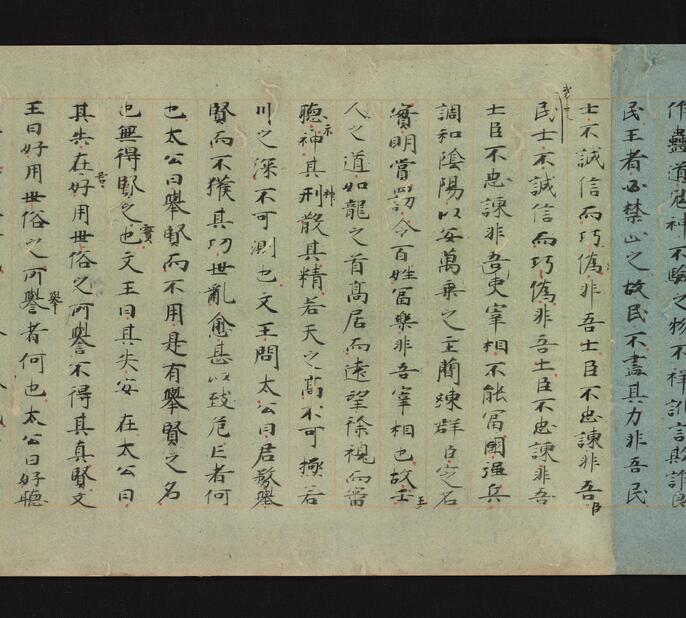 作蠱道鬼神不驗之物不祥訛言欺詐良
民王者必禁止之故民不盡其力非吾民
士不誠信而巧偽非吾士臣不忠諫非吾臣
民士不誠信而巧偽非吾士臣不忠諫非吾
士臣不忠諫非吾吏宰相不能冨國强兵
調和陰陽以安萬乗之主簡練群臣定名
實明賞罰令百姓冨樂非吾宰相也故士王
人之道如龍之首髙居而遠望徐視而審
聴神其刑散其精若天之髙不可極若
川之深不可測也文王問太公曰君務舉
賢而不獲其功世亂愈甚以致危亡者何
也太公曰舉賢而不用是有舉賢之名
也無得賢之實也文王曰其失安在太公曰
其失在好用世俗之所譽不得其真賢文
王曰好用世俗之所譽者何也太公曰好聽